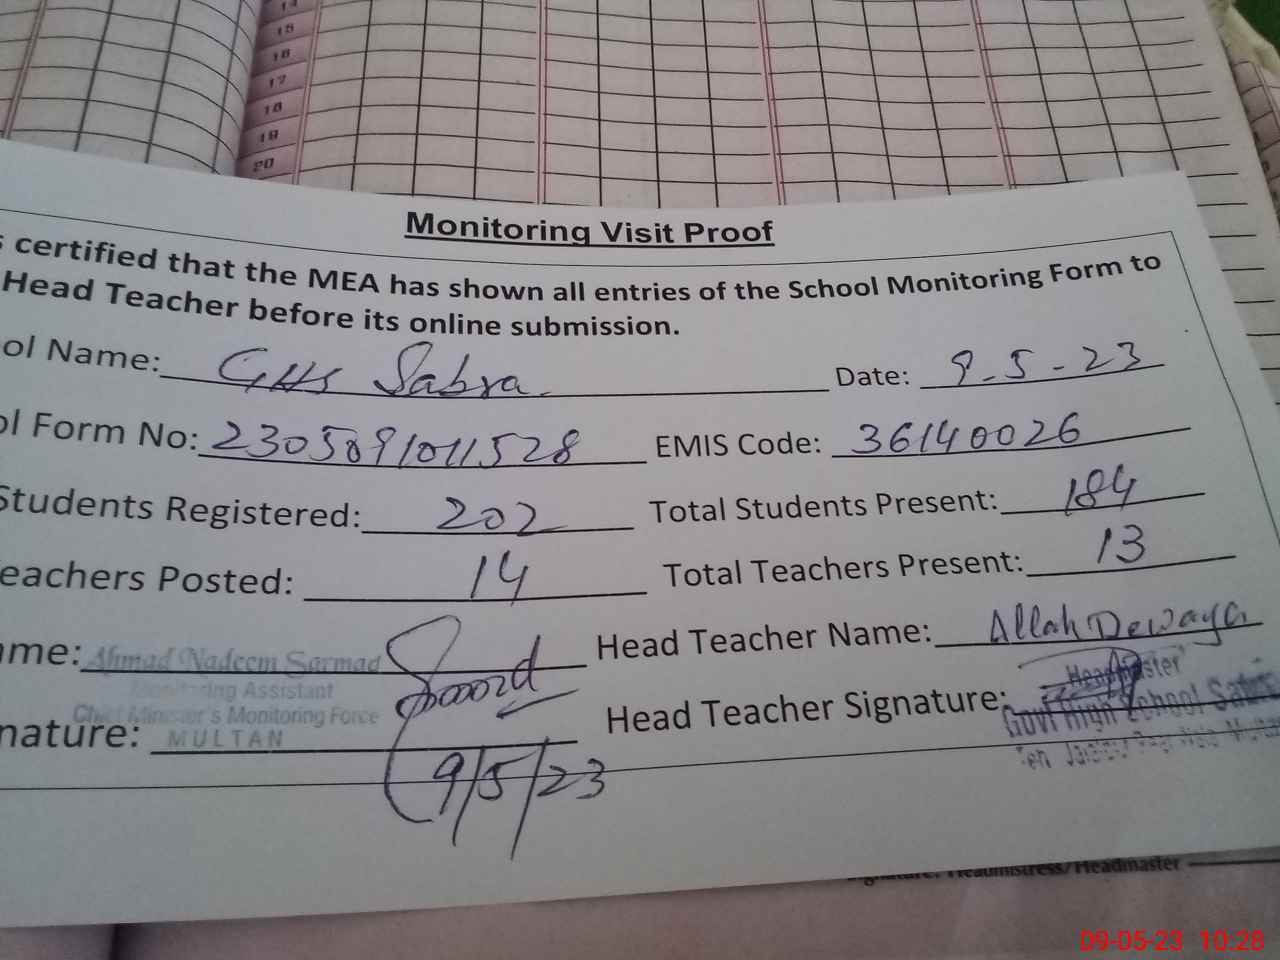 14
15
16
17
18
19
20
Monitoring Visit Proof
certified that the MEA has shown all entries of the School Monitoring Form to
Head Teacher before its online submission.
ol Name: GHS Sabra Date: 9-5-23
ol Form No: 2305091011528 EMIS Code: 36140026
Students Registered: 202 Total Students Present: 184
eachers Posted: 14 Total Teachers Present: 13
ame: Ahmad Nadeem Sarmad Head Teacher Name: Allah Dewaya
Monitoring Assistant
Chief Minister's Monitoring Force
nature: MULTAN Head Teacher Signature: Headmaster
Govt High School
9/5/23
Signature: Headmistress/Headmaster
09-05-23 10:28